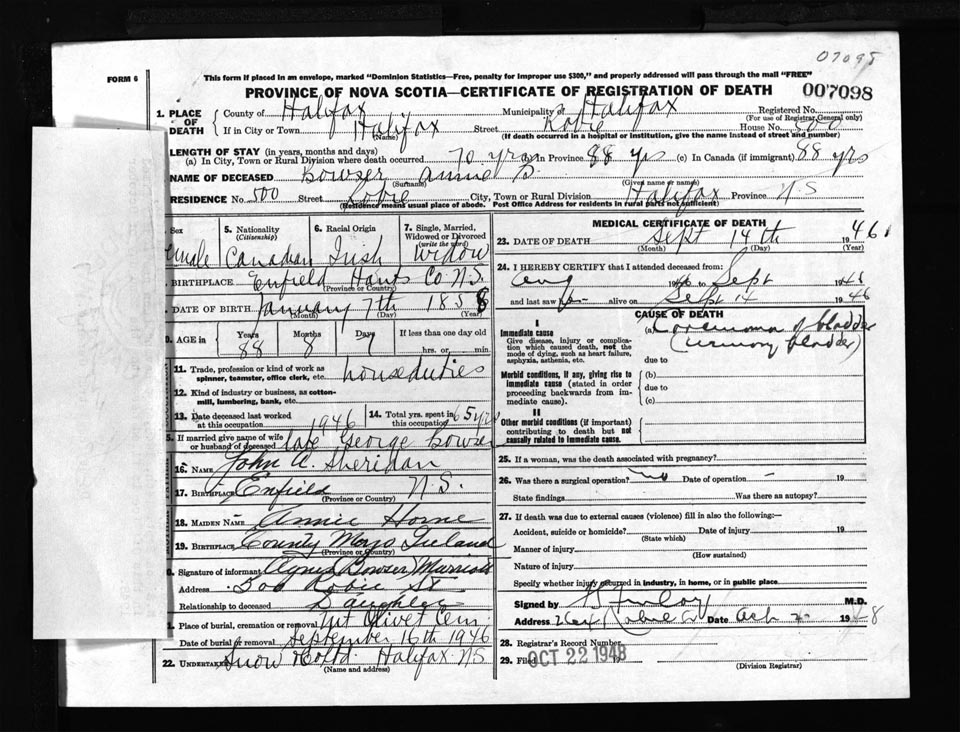 07098
FORM 6
This form if placed in an envelope, marked "Dominion Statistics—Free, penalty for improper use $300," and properly addressed will pass through the mail "FREE"
PROVINCE OF NOVA SCOTIA—CERTIFICATE OF REGISTRATION OF DEATH 007098
1. PLACE OF DEATH
County of Halifax Municipality of Halifax Registered No.
(For use of Registrar General only)
If in City or Town Halifax Street Robie House No. 500
(Name) (If death occurred in a hospital or institution, give the name instead of street and number)
LENGTH OF STAY (in years, months and days)
(a) In City, Town or Rural Division where death occurred 70 yrs (b) In Province 88 yrs (c) In Canada (if immigrant) 88 yrs
NAME OF DECEASED Bowser Annie
(Surname) (Given name or names)
RESIDENCE No. 500 Street Robie City, Town or Rural Division Halifax Province N.S
(Residence means usual place of abode. Post Office Address for residents in rural parts not sufficient)
Sex 5. Nationality (Citizenship) 6. Racial Origin 7. Single, Married, Widowed or Divorced (write the word)
Female Canadian Irish Widow
BIRTHPLACE Enfield Hants Co N.S.
(Province or Country)
DATE OF BIRTH January 7th 1858
(Month) (Day) (Year)
AGE in Years Months Days If less than one day old
88 8 7 hrs. or min.
11. Trade, profession or kind of work as spinner, teamster, office clerk, etc. house duties
12. Kind of industry or business, as cotton-mill, lumbering, bank, etc.
13. Date deceased last worked at this occupation 1946 14. Total yrs. spent in this occupation 65 yrs
5. If married give name of wife or husband of deceased late George Bowser
16. NAME John A. Sheridan
17. BIRTHPLACE Enfield N.S.
(Province or Country)
18. MAIDEN NAME Annie Horne
19. BIRTHPLACE County Mayo Ireland
(Province or Country)
Signature of informant Agnes (Bowser) Marriott
Address 500 Robie St
Relationship to deceased Daughter
Place of burial, cremation or removal Mt Olivet Cem
Date of burial or removal September 16th 1946
22. UNDERTAKER Snow & Co Ltd. Halifax N.S
(Name and address)
MEDICAL CERTIFICATE OF DEATH
23. DATE OF DEATH Sept 14th 1946
(Month) (Day) (Year)
24. I HEREBY CERTIFY that I attended deceased from:
Aug 1946 to Sept 1946
and last saw h alive on Sept 14 1946
CAUSE OF DEATH
I
Immediate cause (a) Carcinoma of bladder
Give disease, injury or complication which caused death, not the mode of dying, such as heart failure, asphyxia, asthenia, etc. (urinary bladder)
due to
Morbid conditions, if any, giving rise to immediate cause (stated in order proceeding backwards from immediate cause).
(b)
due to
(c)
II
Other morbid conditions (if important) contributing to death but not causally related to immediate cause.
25. If a woman, was the death associated with pregnancy?
26. Was there a surgical operation? no Date of operation - 19
State findings Was there an autopsy?
27. If death was due to external causes (violence) fill in also the following:—
Accident, suicide or homicide? Date of injury 19
(State which)
Manner of injury
(How sustained)
Nature of injury
Specify whether injury occurred in industry, in home, or in public place
Signed by M.D.
Address Robie St Date 1948
28. Registrar's Record Number
29. Filed OCT 22 1948
(Division Registrar)